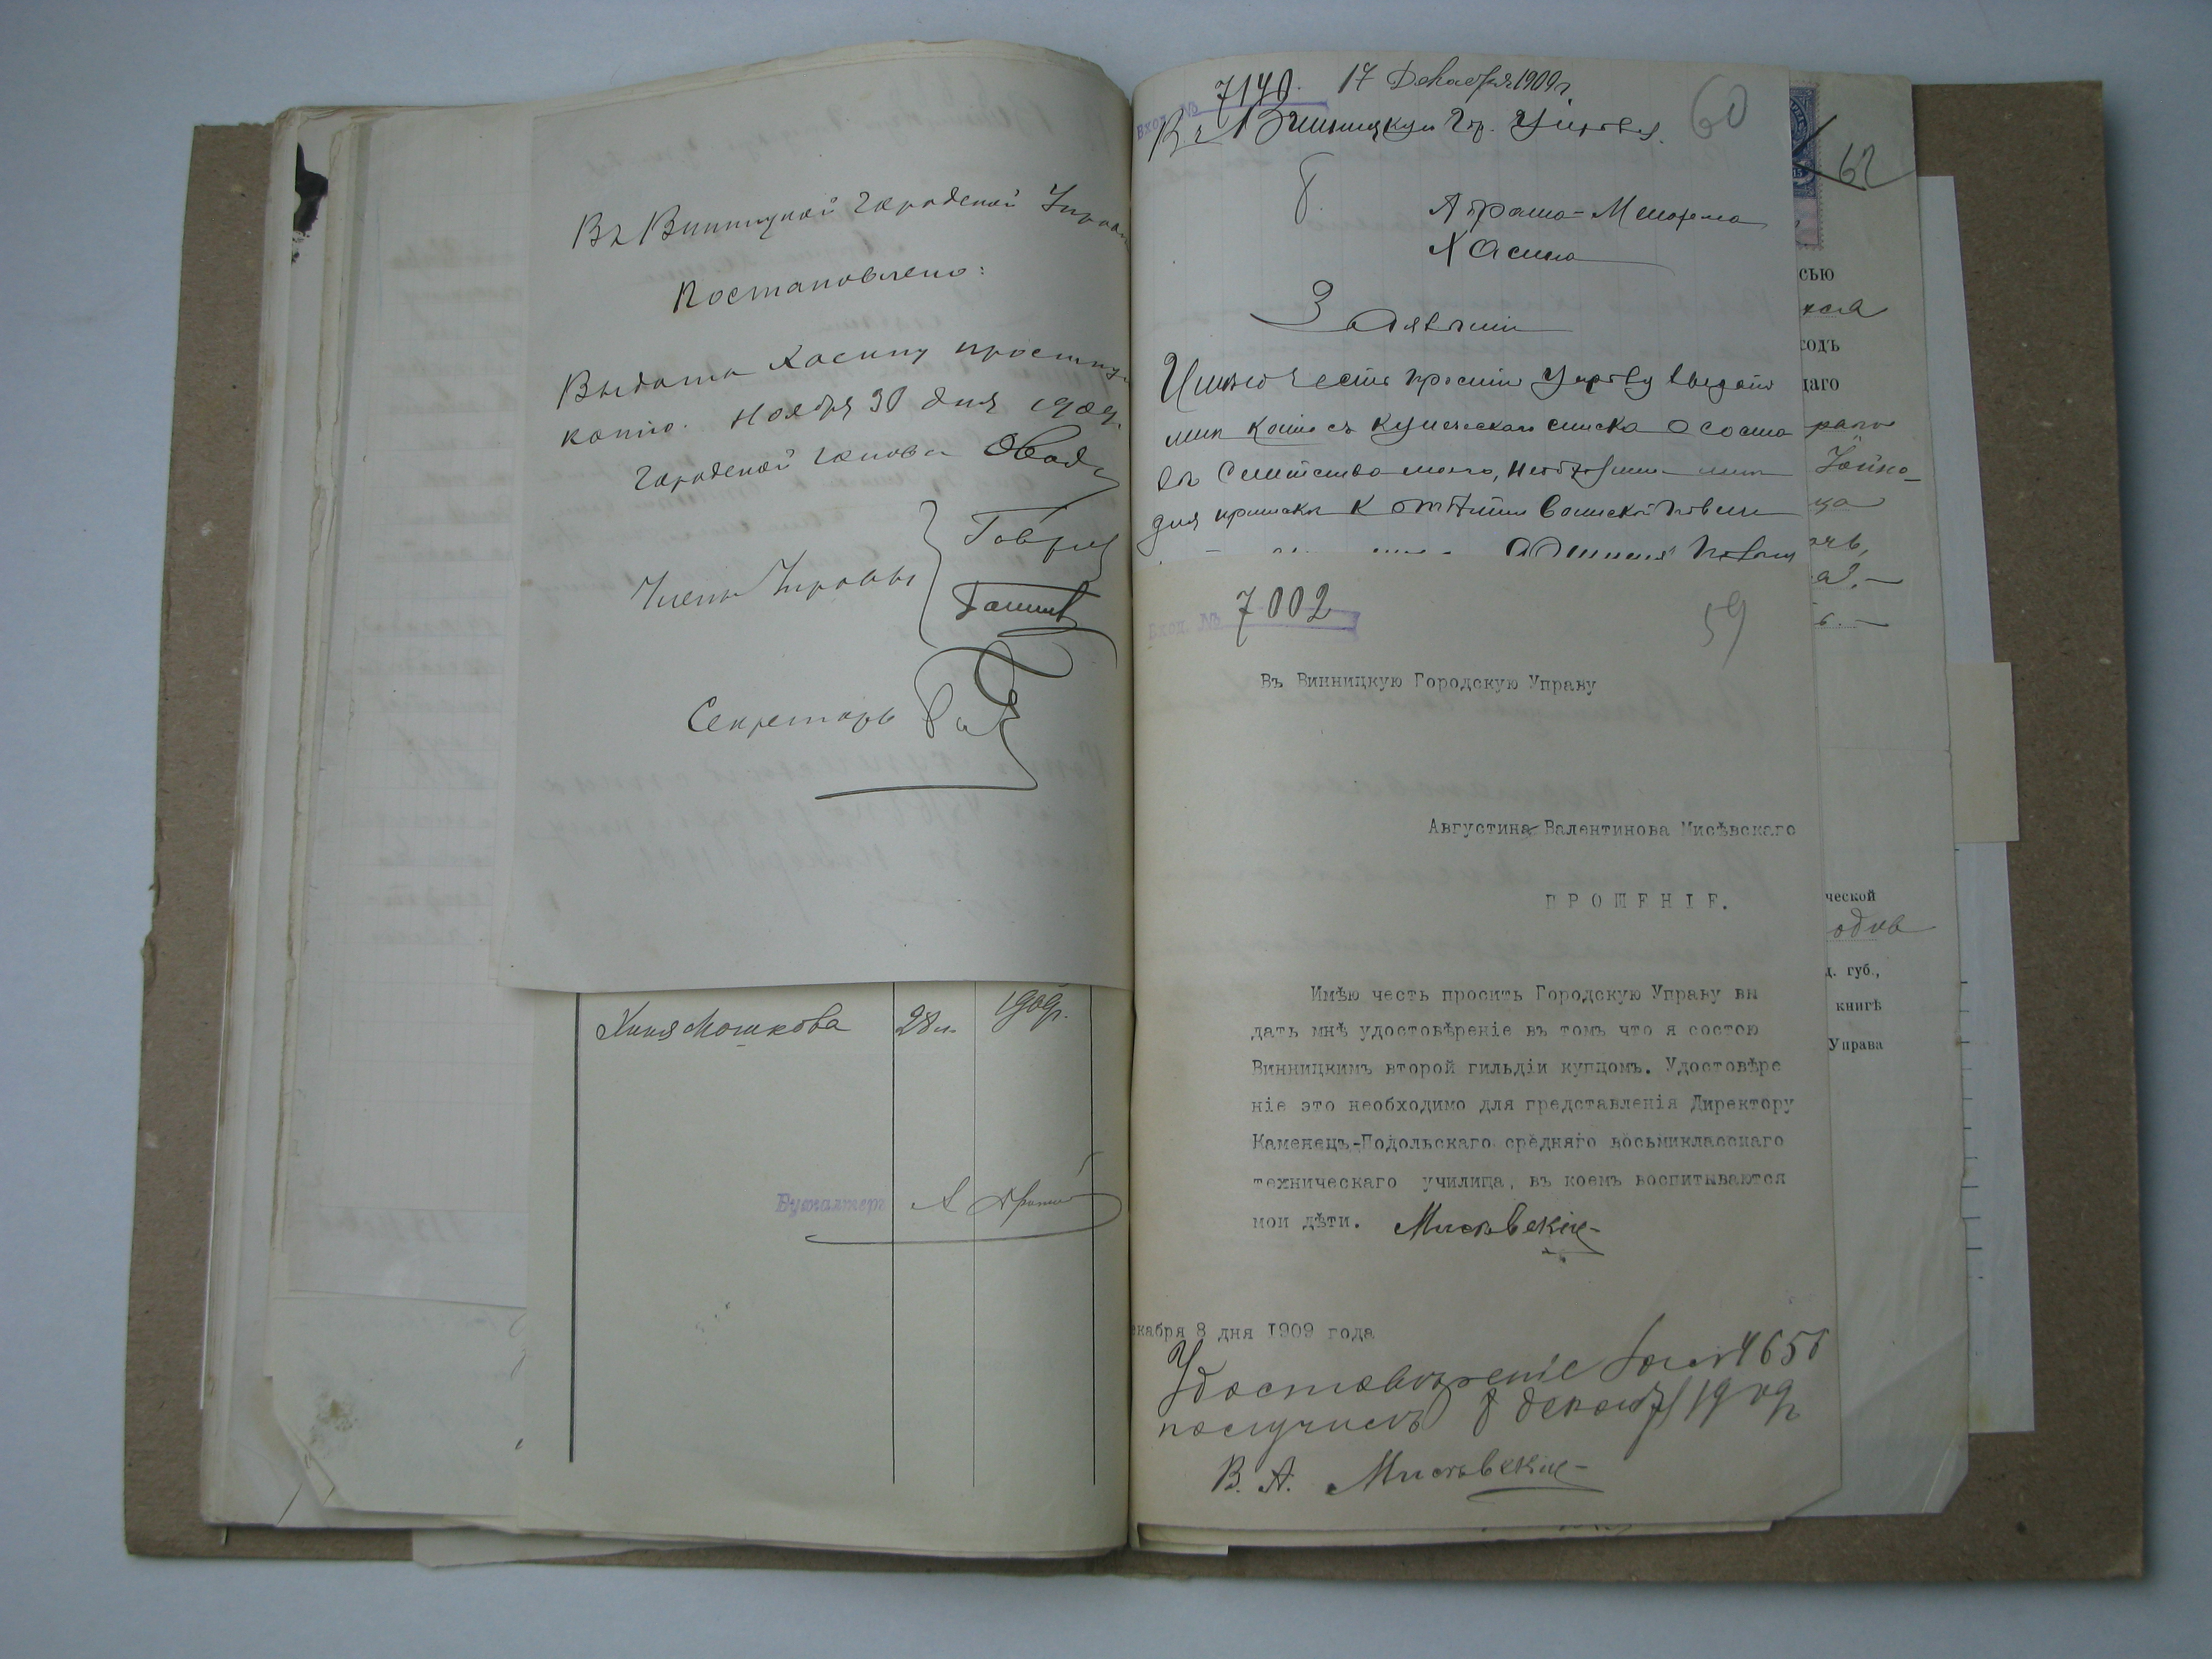 Въ Винницкой Городской Управ
Постановлено:
Выдать Хасину простую
копію. Ноября 30 дня 1909
Городской Голова
Члены Управы
Секретарь
Хиня Мошкова 28 л. 1909г.
Бухгалтеръ
Вход. № 7140. 17 Декабря 1909 г.
60
Въ Винницкую Гор. Управу.
Абрама-Менахема
Хасина
Заявленіе
Имѣю честь просить Управу выдать
мнѣ копію съ купеческаго списка о соста
вѣ Семейства моего, необходимую мнѣ
для приписки к отбытію воинской повин
Вход. № 7002
59
Въ Винницкую Городскую Управу
Августина Валентинова Мисѣвскаго
ПРОШЕНІЕ.
Имѣю честь просить Городскую Управу вы
дать мнѣ удостовѣреніе въ томъ что я состою
Винницкимъ второй гильдіи купцомъ. Удостовѣре
ніе это необходимо для представленія Директору
Каменецъ-Подольскаго средняго восьмикласснаго
техническаго училища, въ коемъ воспитываются
мои дѣти. Мисѣвскій
екабря 8 дня 1909 года
Удостовѣреніе за № 4656
получилъ 8 декабря 1909 г.
В. А. Мисѣвскій
62
сью
ходъ
щаго
ческой
од. губ.,
книгѣ
Управа